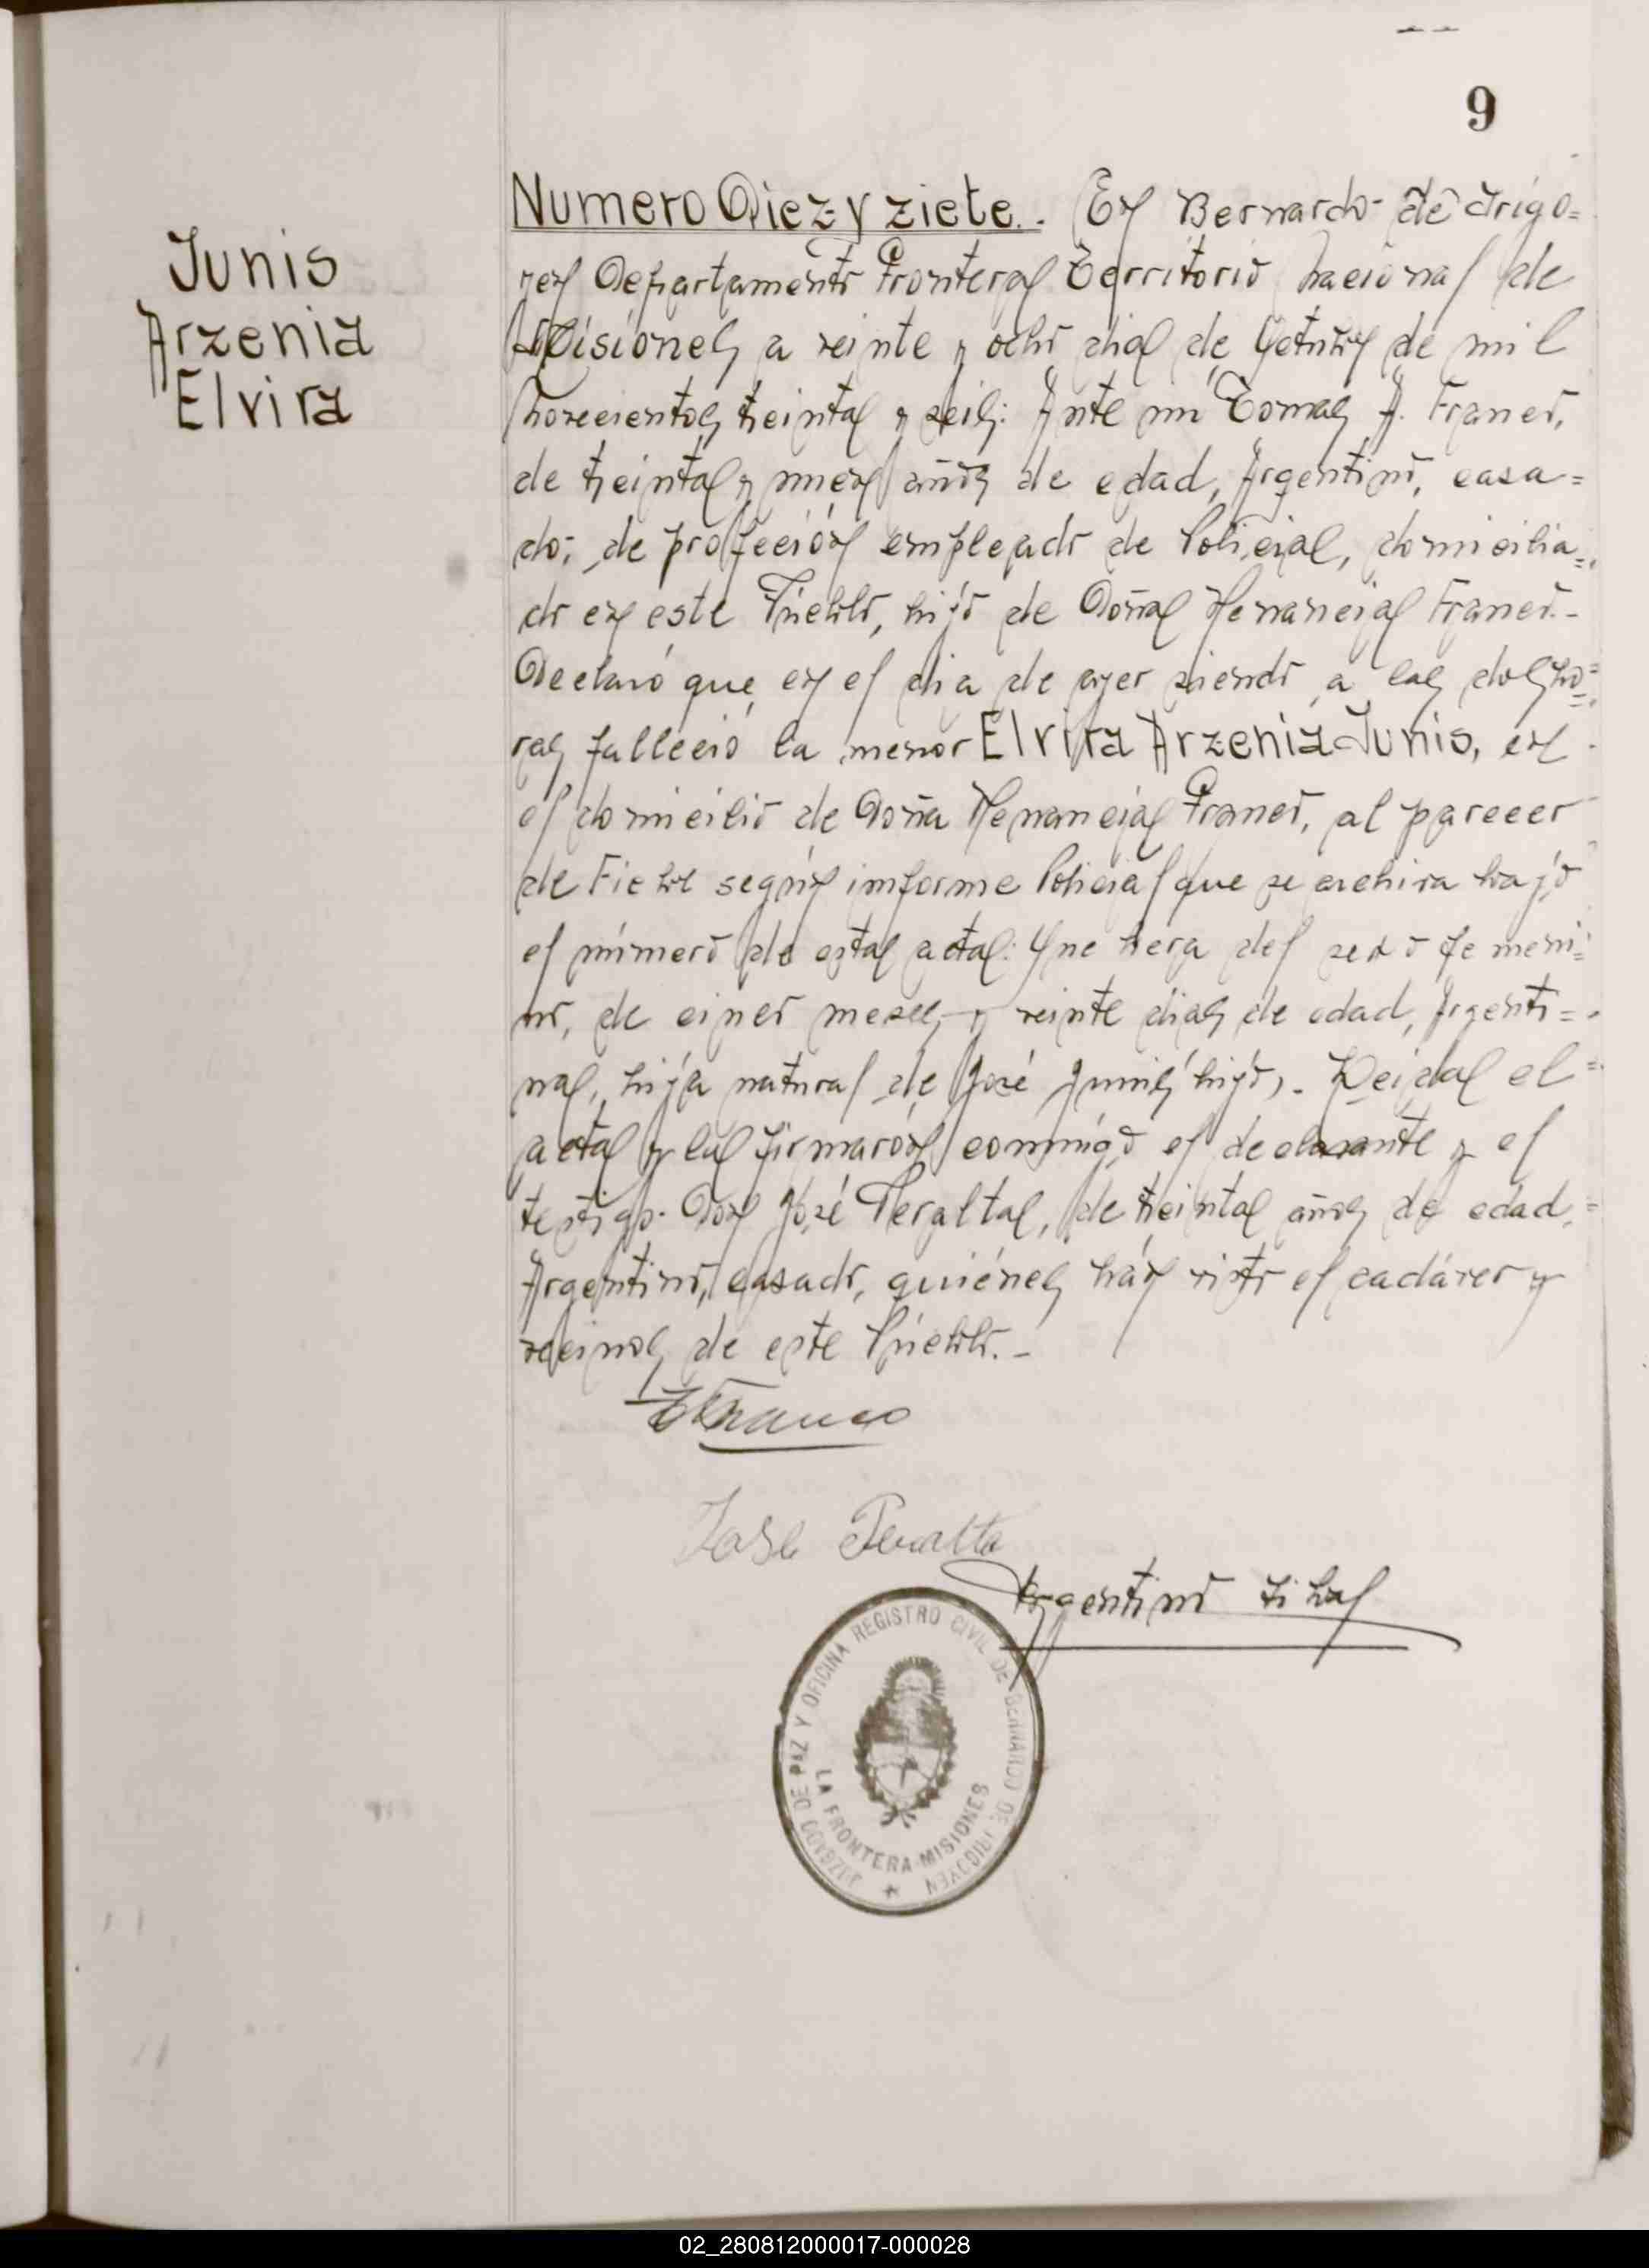 9
Junis
Arzenia
Elvira
Numero Diez y ziete.. En Bernardo de Irigo=
yen Departamento Frontera Territorio Nacional de
Misiones, a veinte y ocho dias de Octubre de mil
Novecientos treinta y seis: Ante mi Tomas A. Franco,
de treinta y nueve años de edad, Argentino, casa=
do; de profeción empleado de Policia, domicilia=
do en este Pueblo, hijo de Doña Venancia Franco.-
Declaró que, en el dia de ayer siendo a las dos ho=
ras falleció la menor Elvira Arzenia Junis, en
el domicilio de Doña Venancia Franco, al parecer
de Fiebre según imforme Policial que se archiva bajo
el número de esta acta: Que hera del sexo femeni=
no, de cinco meses y veinte dias de edad, Argenti=
na, hija natural de José Junis hijo,. Leida el
acta y la firmarón conmigo el declarante y el
testigo. Don José Peralta, de treinta años de edad,
Argentino, casado, quiénes hán visto el cadáver y
vecinos de este Pueblo.-
TFranco
Jose Peralta
Argentino
JUZGADO DE PAZ Y OFICINA REGISTRO CIVIL DE BERNARDO DE IRIGOYEN
LA FRONTERA-MISIONES
02_280812000017-000028